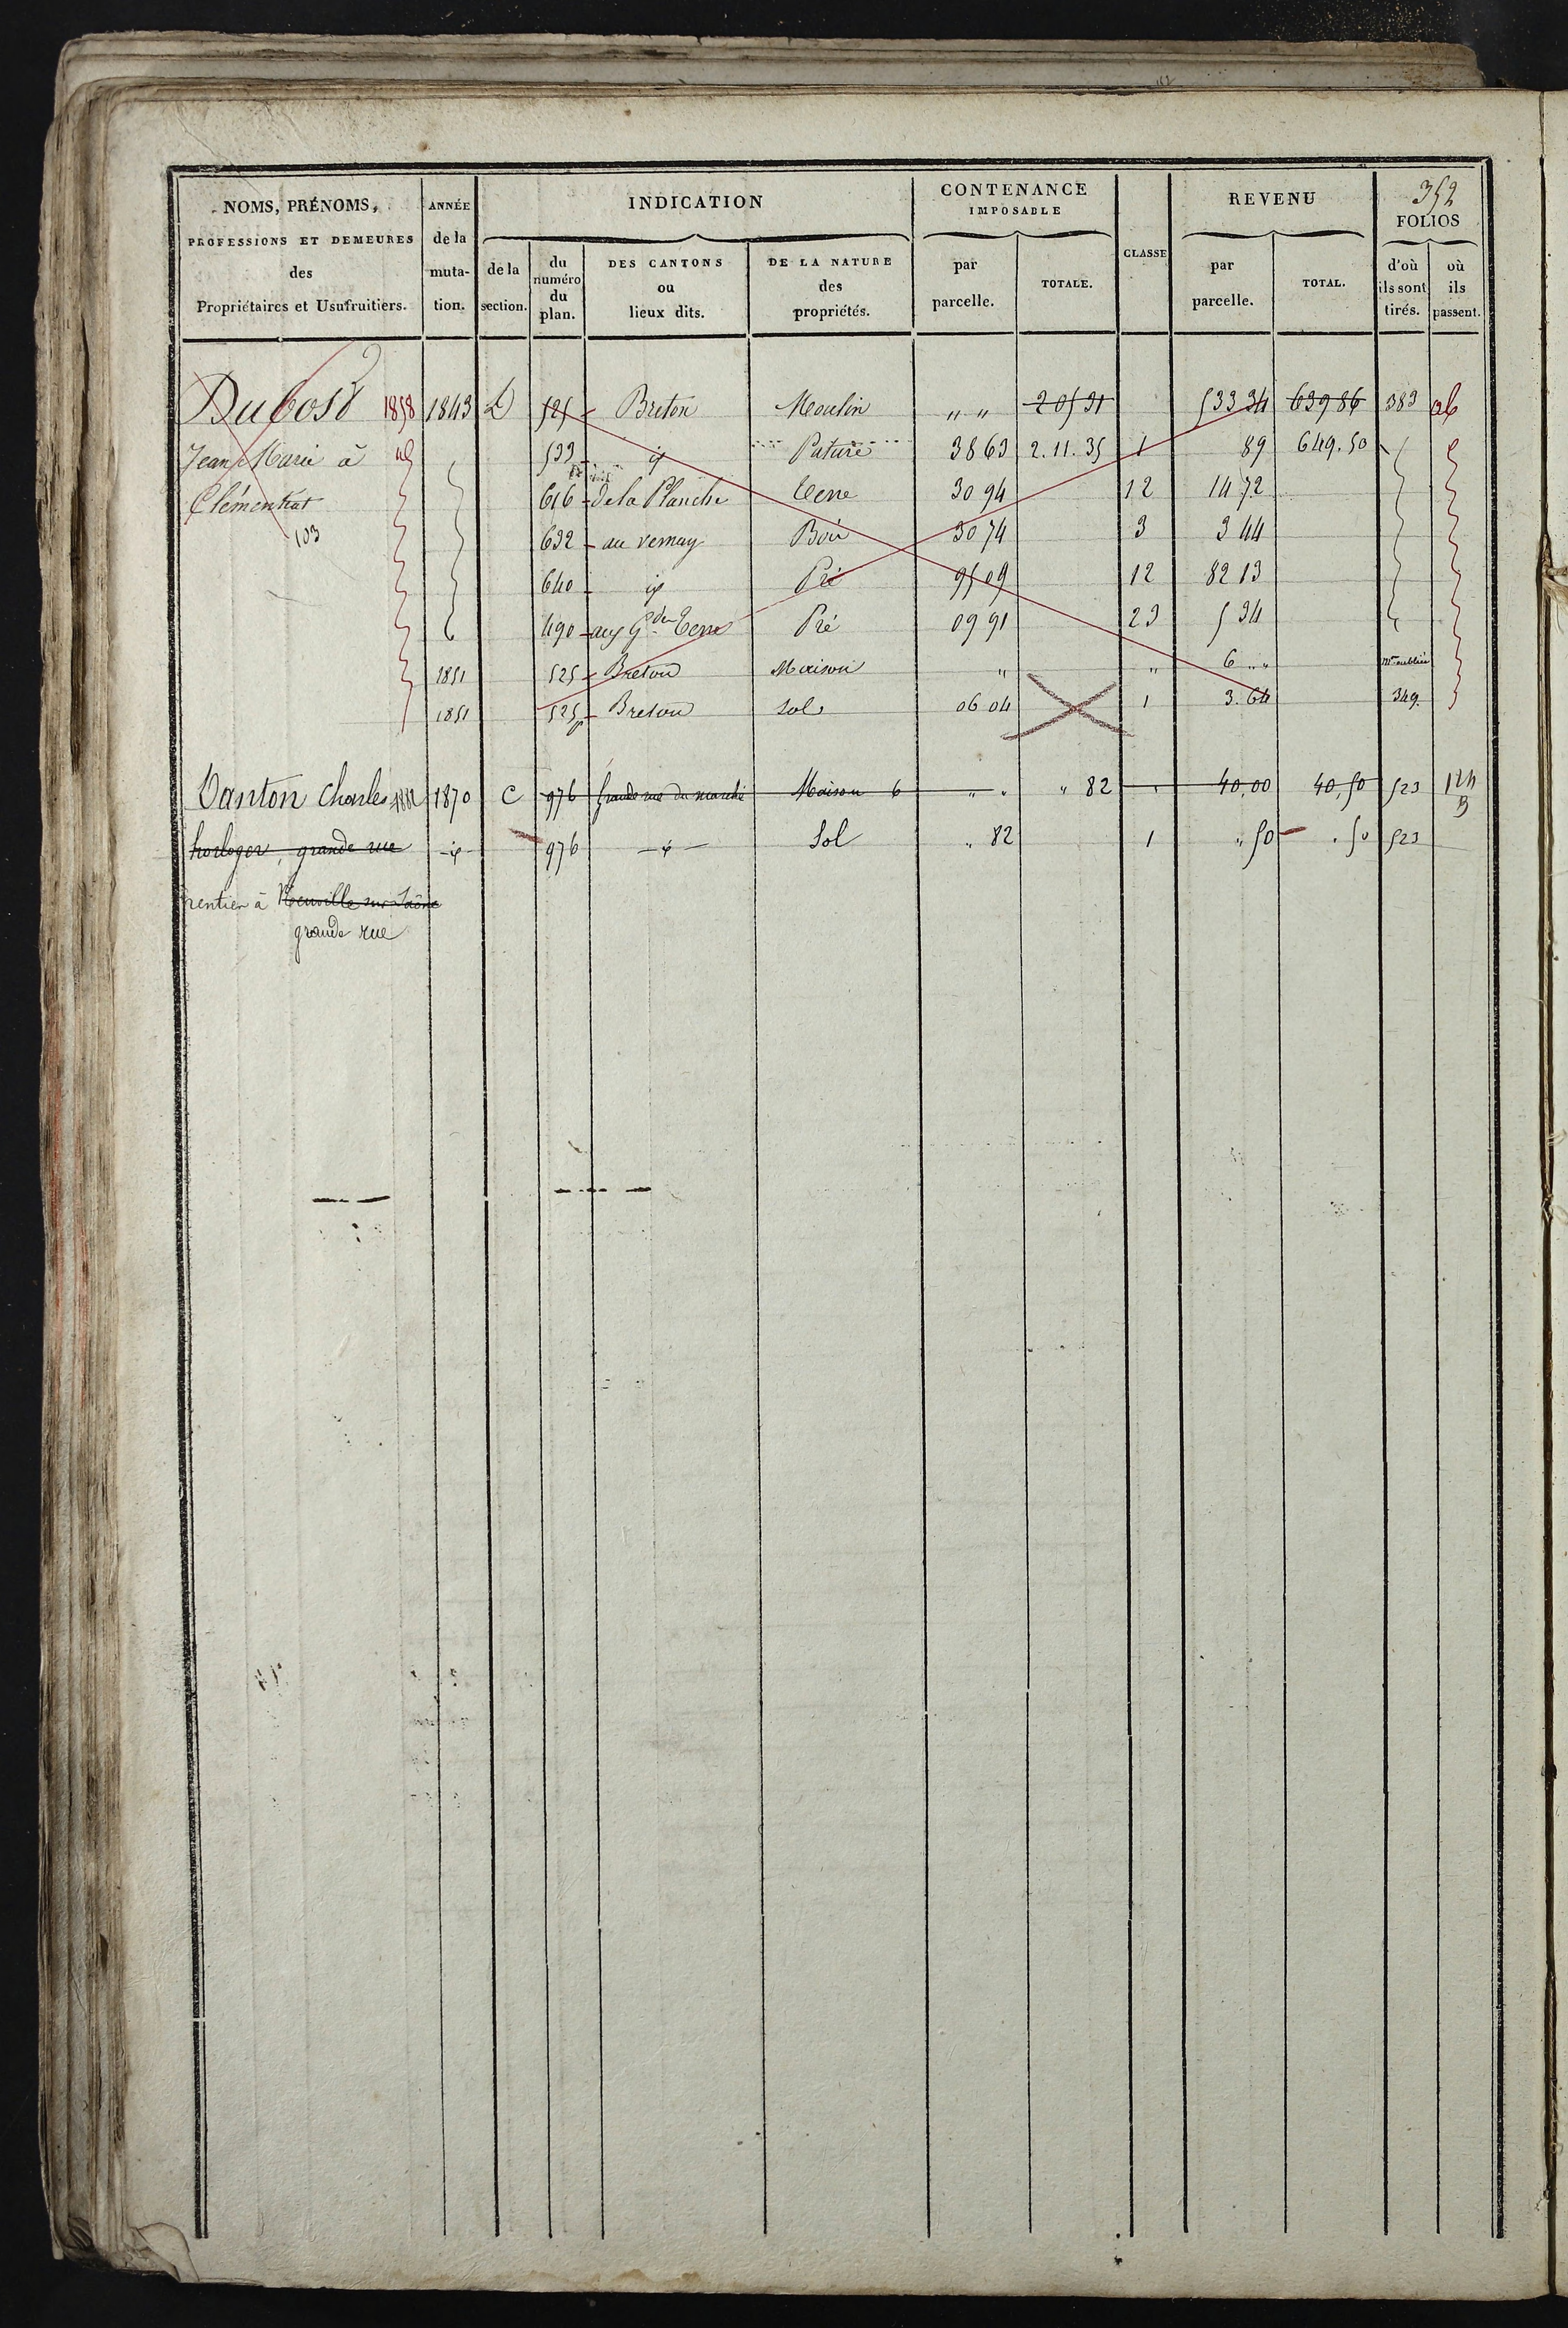 352
NOMS, PRÉNOMS, PROFESSIONS ET DEMEURES des Propriétaires et Usufruitiers.
ANNÉE de la muta- tion.
INDICATION
de la section.
du numéro du plan.
DES CANTONS ou lieux dits.
DE LA NATURE des propriétés.
CONTENANCE IMPOSABLE
par parcelle.
TOTALE.
CLASSE
REVENU
par parcelle.
TOTAL.
FOLIOS
d'où ils sont tirés.
où ils passent.
Dubost 1858 1843 D 525 Breton Moulin " " 2 05 31 533 34 639 86 383
Jean Marie à 533 id Pature 38 63 2.11.35 1 89 649.50
Clémentiat 616 de la Planche Terre 30 94 12 14 72
103 632 au vernay Bois 30 74 3 3 44
640 id Pré 95 09 12 82 13
490 aux Gdes Terres Pré 09 91 23 5 34
1851 525 Breton Maison " " 6 " "
1851 525p Breton Sol 06 04 1 3.64 349.
Vanton Charles 1882 1870 C 976 Grande rue du marché Maison 6 " " " 82 " 40,00 40,50 523 124 B
horloger, grande rue id 976 id Sol " 82 1 " 50 " 50 523
rentier à Neuville sur Saône
grande rue